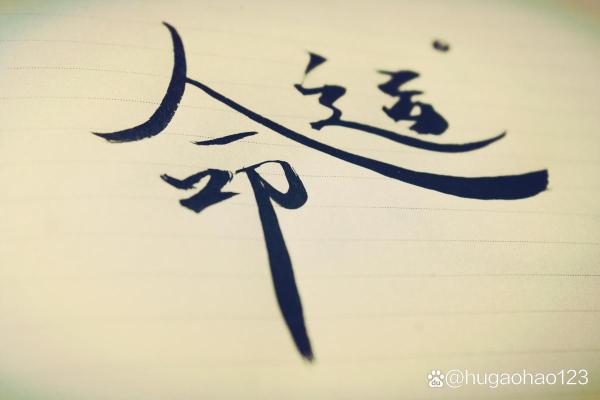 命运
@hugaohao123